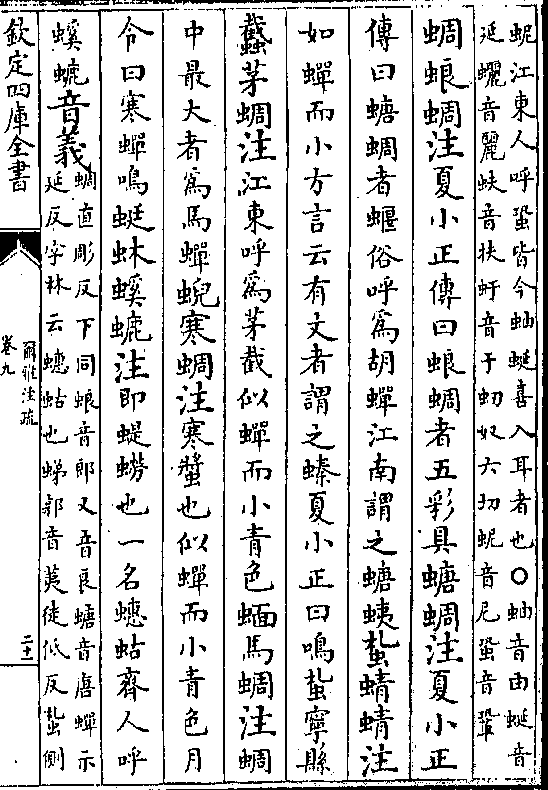 蚭江東人呼蛩皆今蚰蜒喜入耳者也○蚰音由蜒音
延𧕯音麗蚨音扶虶音于䖡奴六切蚭音尼蛩音鞏
蜩蜋蜩注夏小正傳曰蜋蜩者五彩具螗蜩注夏小正
傳曰螗蜩者蝘俗呼爲胡蟬江南謂之螗蛦蚻蜻蜻注
如蟬而小方言云有文者謂之螓夏小正曰鳴蚻寧縣
蠽茅蜩注江東呼爲茅截似蟬而小青色蝒馬蜩注蜩
中最大者爲馬蟬蜺寒蜩注寒螿也似蟬而小青色月
令曰寒蟬鳴蜓蚞螇螰注即蝭蟧也一名蟪蛄齊人呼
螇螰音義
蜩直彫反下同蜋音郎又音良螗音唐蟬示
延反字林云蟪蛄也蛦郭音荑徒低反蚻側
欽定四庫全書
爾雅注疏
卷九
二十一